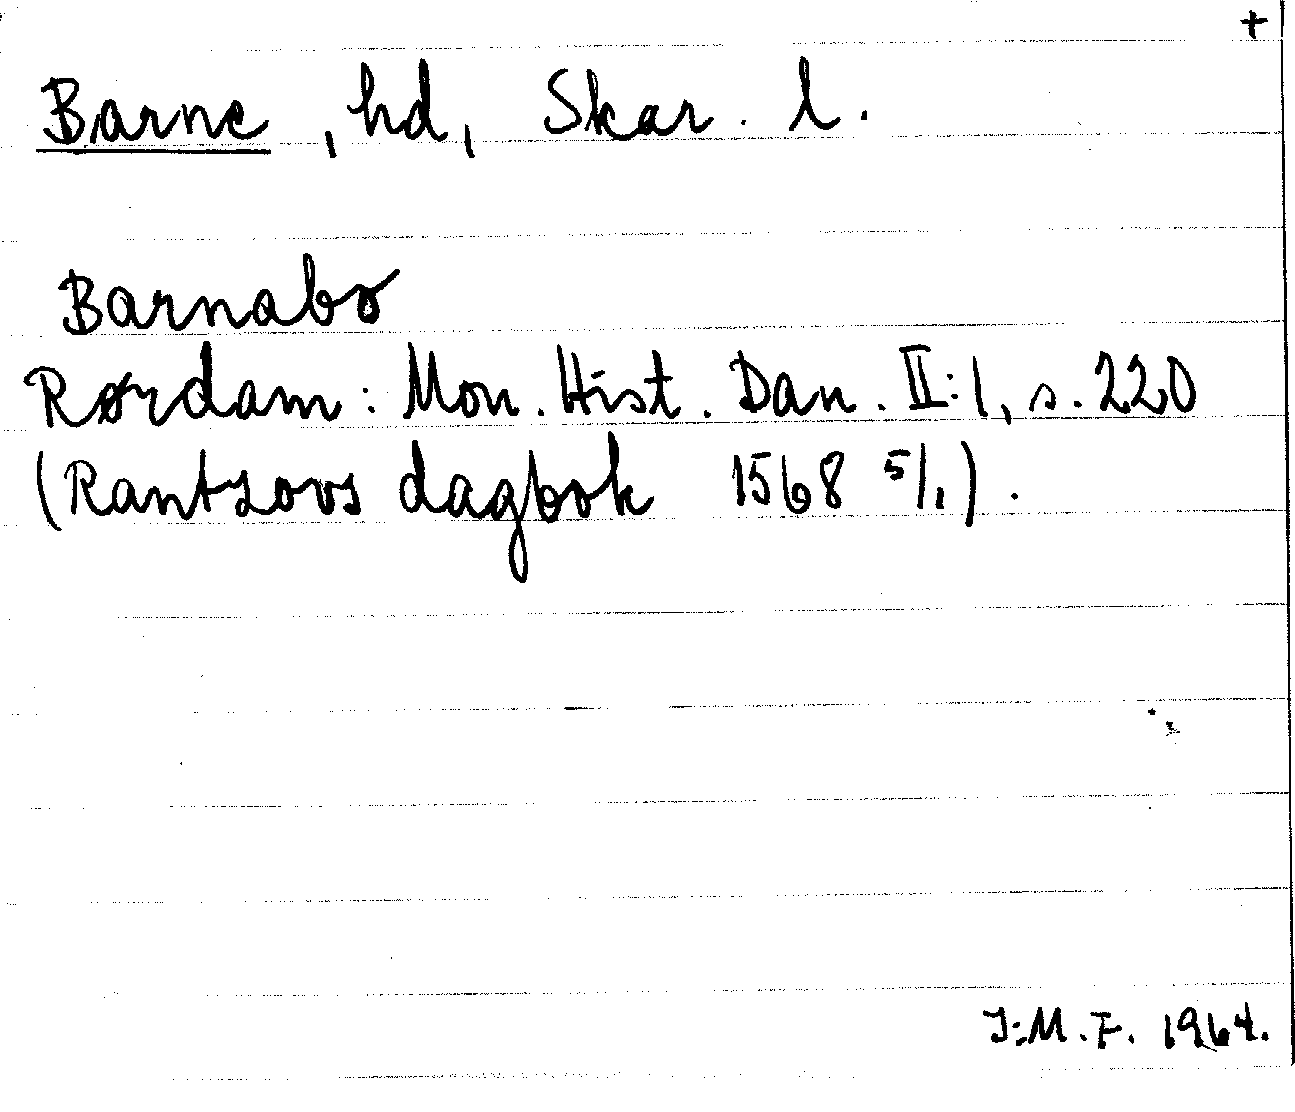 +
Barne, hd, Skar. l.
Barnabo
Rørdam: Mon. Hist. Dan. II:1, s. 220
(Rantzovs dagbok 1568 5/1).
J:M.F. 1964.